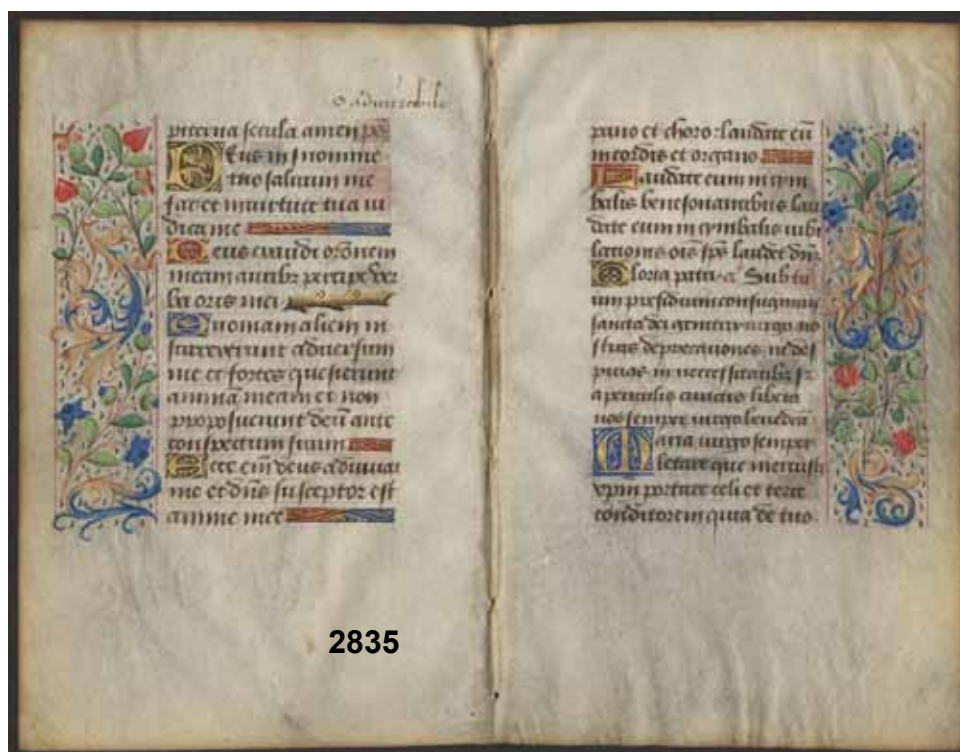 O admirabile
piterna secula amen ps
Deus in nomine
tuo salvum me
fac et in virtute tua iu
dica me
Deus exaudi orōnem
meam auribz percipe ver
ba oris mei
Quoniam alieni in
surrexerunt adversum
me et fortes quesierunt
animā meam et non
proposuerunt deū ante
conspectum suum
Ecce eīm deus adiuvat
me et dn̄s susceptor est
anime mee
2835
pano et choro: laudate eū
in cordis et organo
Laudate eum in cym
balis benesonantibus lau
date eum in cymbalis iubi
lationis ois sps laudet dn̄z
Gloria patri Sub tu
um presidium confugimus
sancta dei genitrix virgo no
stras deprecationes ne des
picias in necessitatibz sz
a periculis cunctis libera
nos sempre virgo benedcā
Maria virgo semper
letare que meruisti
xpm portare celi et terre
conditorem quia de tuo